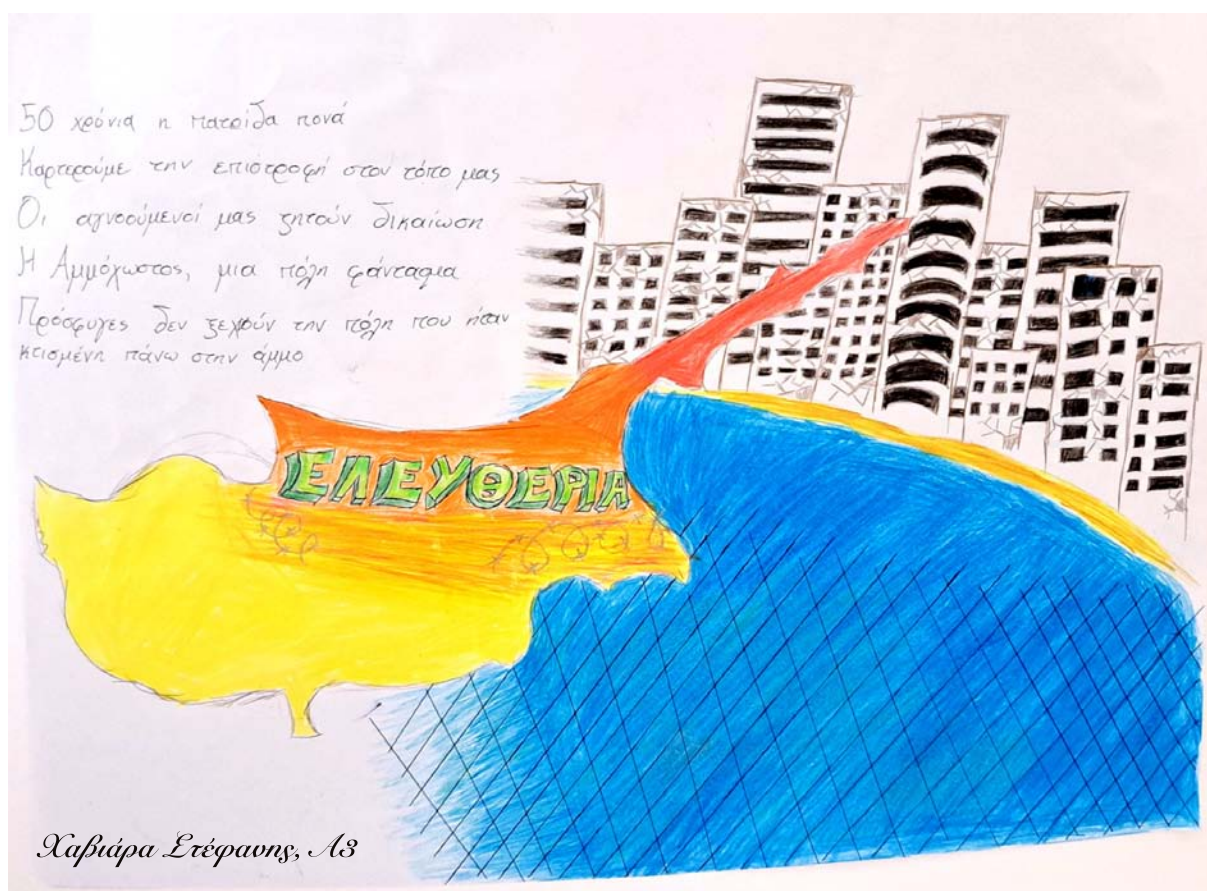 50 χρόνια η πατρίδα πονά
Καρτερούμε την επιστροφή στον τόπο μας
Οι αγνοούμενοί μας ζητούν δικαίωση
Η Αμμόχωστος, μια πόλη φάντασμα
Πρόσφυγες δεν ξεχνούν την πόλη που ήταν
κτισμένη πάνω στην άμμο
ΕΛΕΥΘΕΡΙΑ
Χαβιάρα Στέφανης, Α3